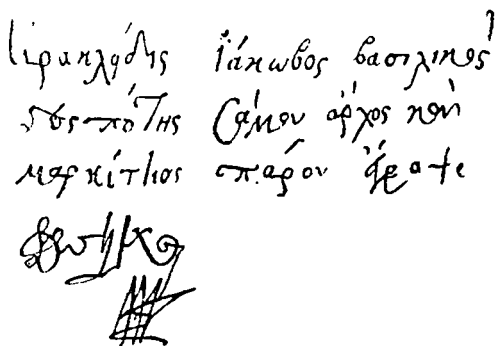 ἱρακλήδης Ἰάκωβος βασιλικὸς
δεσπότης Σάμου ἄρχος καὶ
μαρκίτιος πάρου ἔγραψε